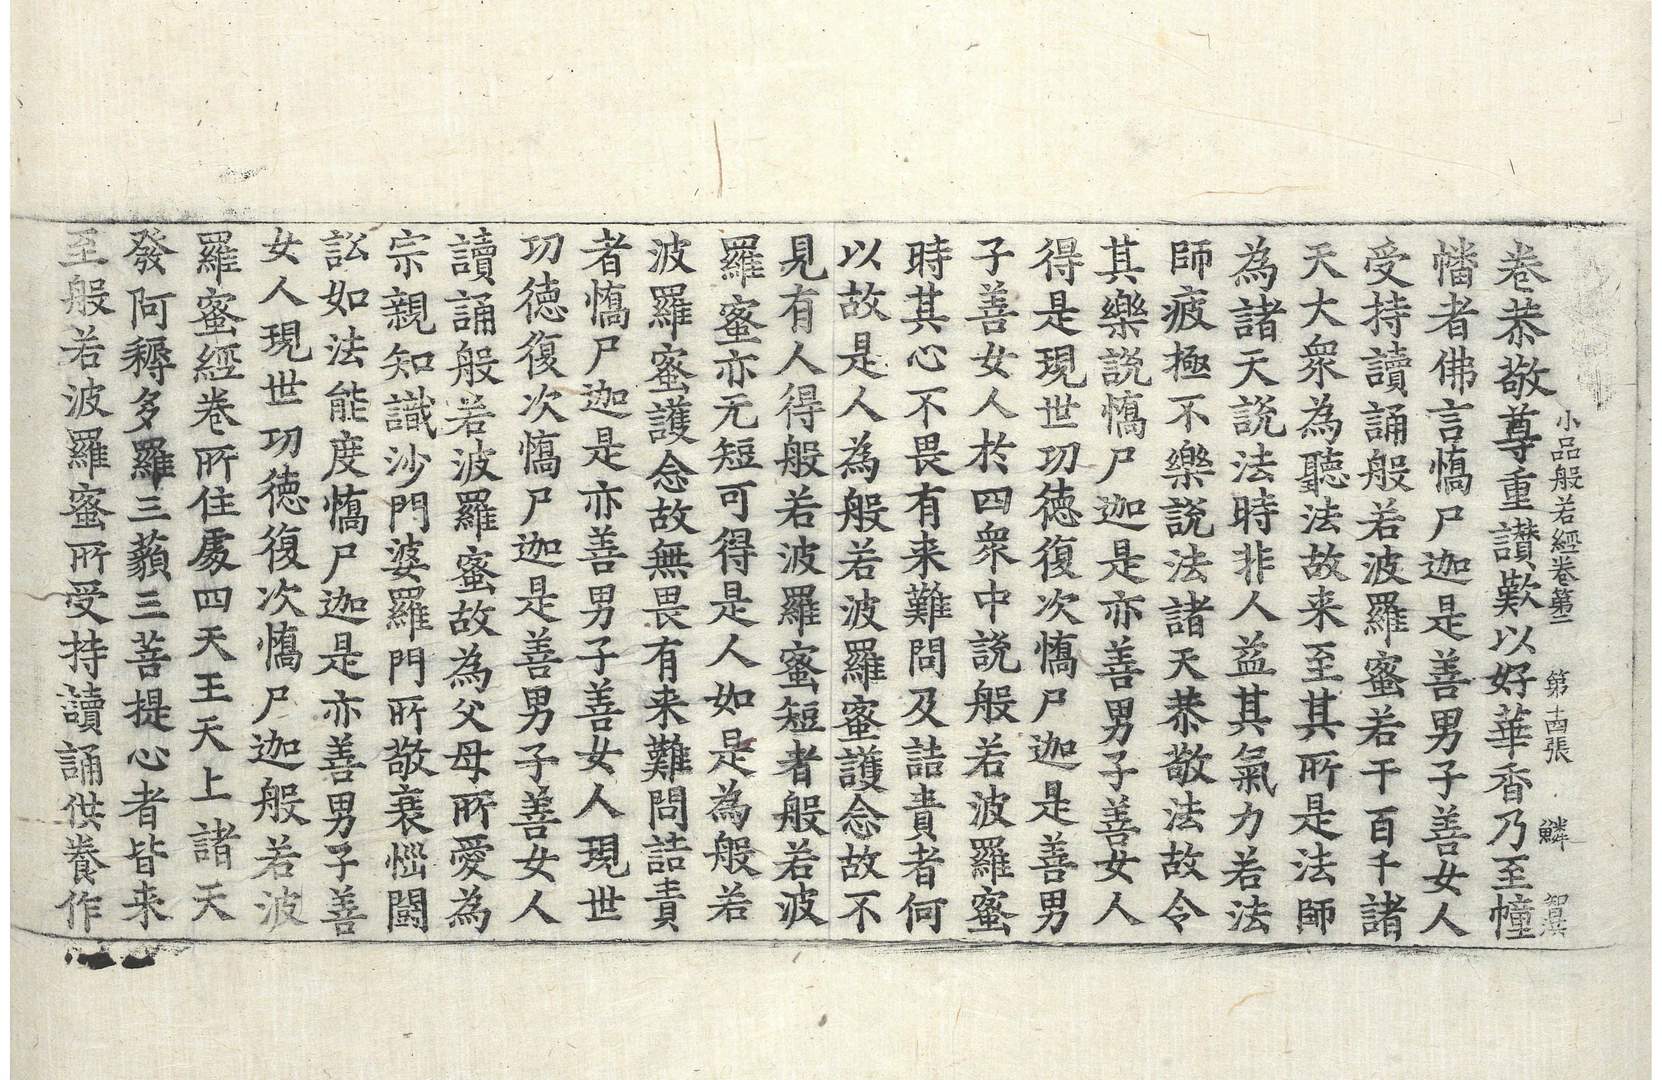 卷恭敬尊重讃歎以好華香乃至幢
小品般若經卷第二 第十四張 鱗
幡者佛言憍尸迦是善男子善女人
受持讀誦般若波羅蜜若干百千諸
天大衆為聽法故来至其所是法師
為諸天說法時非人益其氣力若法
師疲極不樂說法諸天恭敬法故令
其樂說憍尸迦是亦善男子善女人
得是現世功德復次憍尸迦是善男
子善女人於四衆中說般若波羅蜜
時其心不畏有来難問及詰責者何
以故是人為般若波羅蜜護念故不
見有人得般若波羅蜜短者般若波
羅蜜亦无短可得是人如是為般若
波羅蜜護念故無畏有来難問詰責
者憍尸迦是亦善男子善女人現世
功德復次憍尸迦是善男子善女人
讀誦般若波羅蜜故為父母所愛為
宗親知識沙門婆羅門所敬衰惱鬪
訟如法能度憍尸迦是亦善男子善
女人現世功德復次憍尸迦般若波
羅蜜經卷所住處四天王天上諸天
發阿耨多羅三藐三菩提心者皆来
至般若波羅蜜所受持讀誦供養作